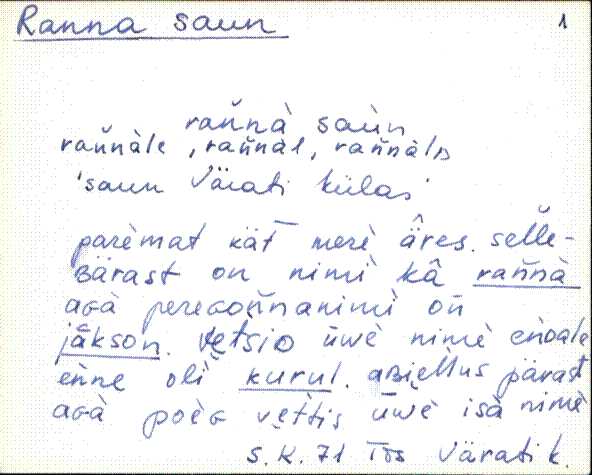 Ranna saun 1
ran̆nà saùn
ran̆nàle, ran̆nàl, ran̆nàlᴅ
'saun Värati külas'
parèmat kät merè ä̂res. sel̆le-
ʙärast on nimì kâ ran̆nà
aɢà pereɢon̆nanimì on̆
jâkson. vetsiᴅ ūwè nimè eǹᴅale
eǹne olì kurul. aʙiellus pärast
aɢà poèɢ vettis ūwè isà nimè
S.K. 71 Värati k.